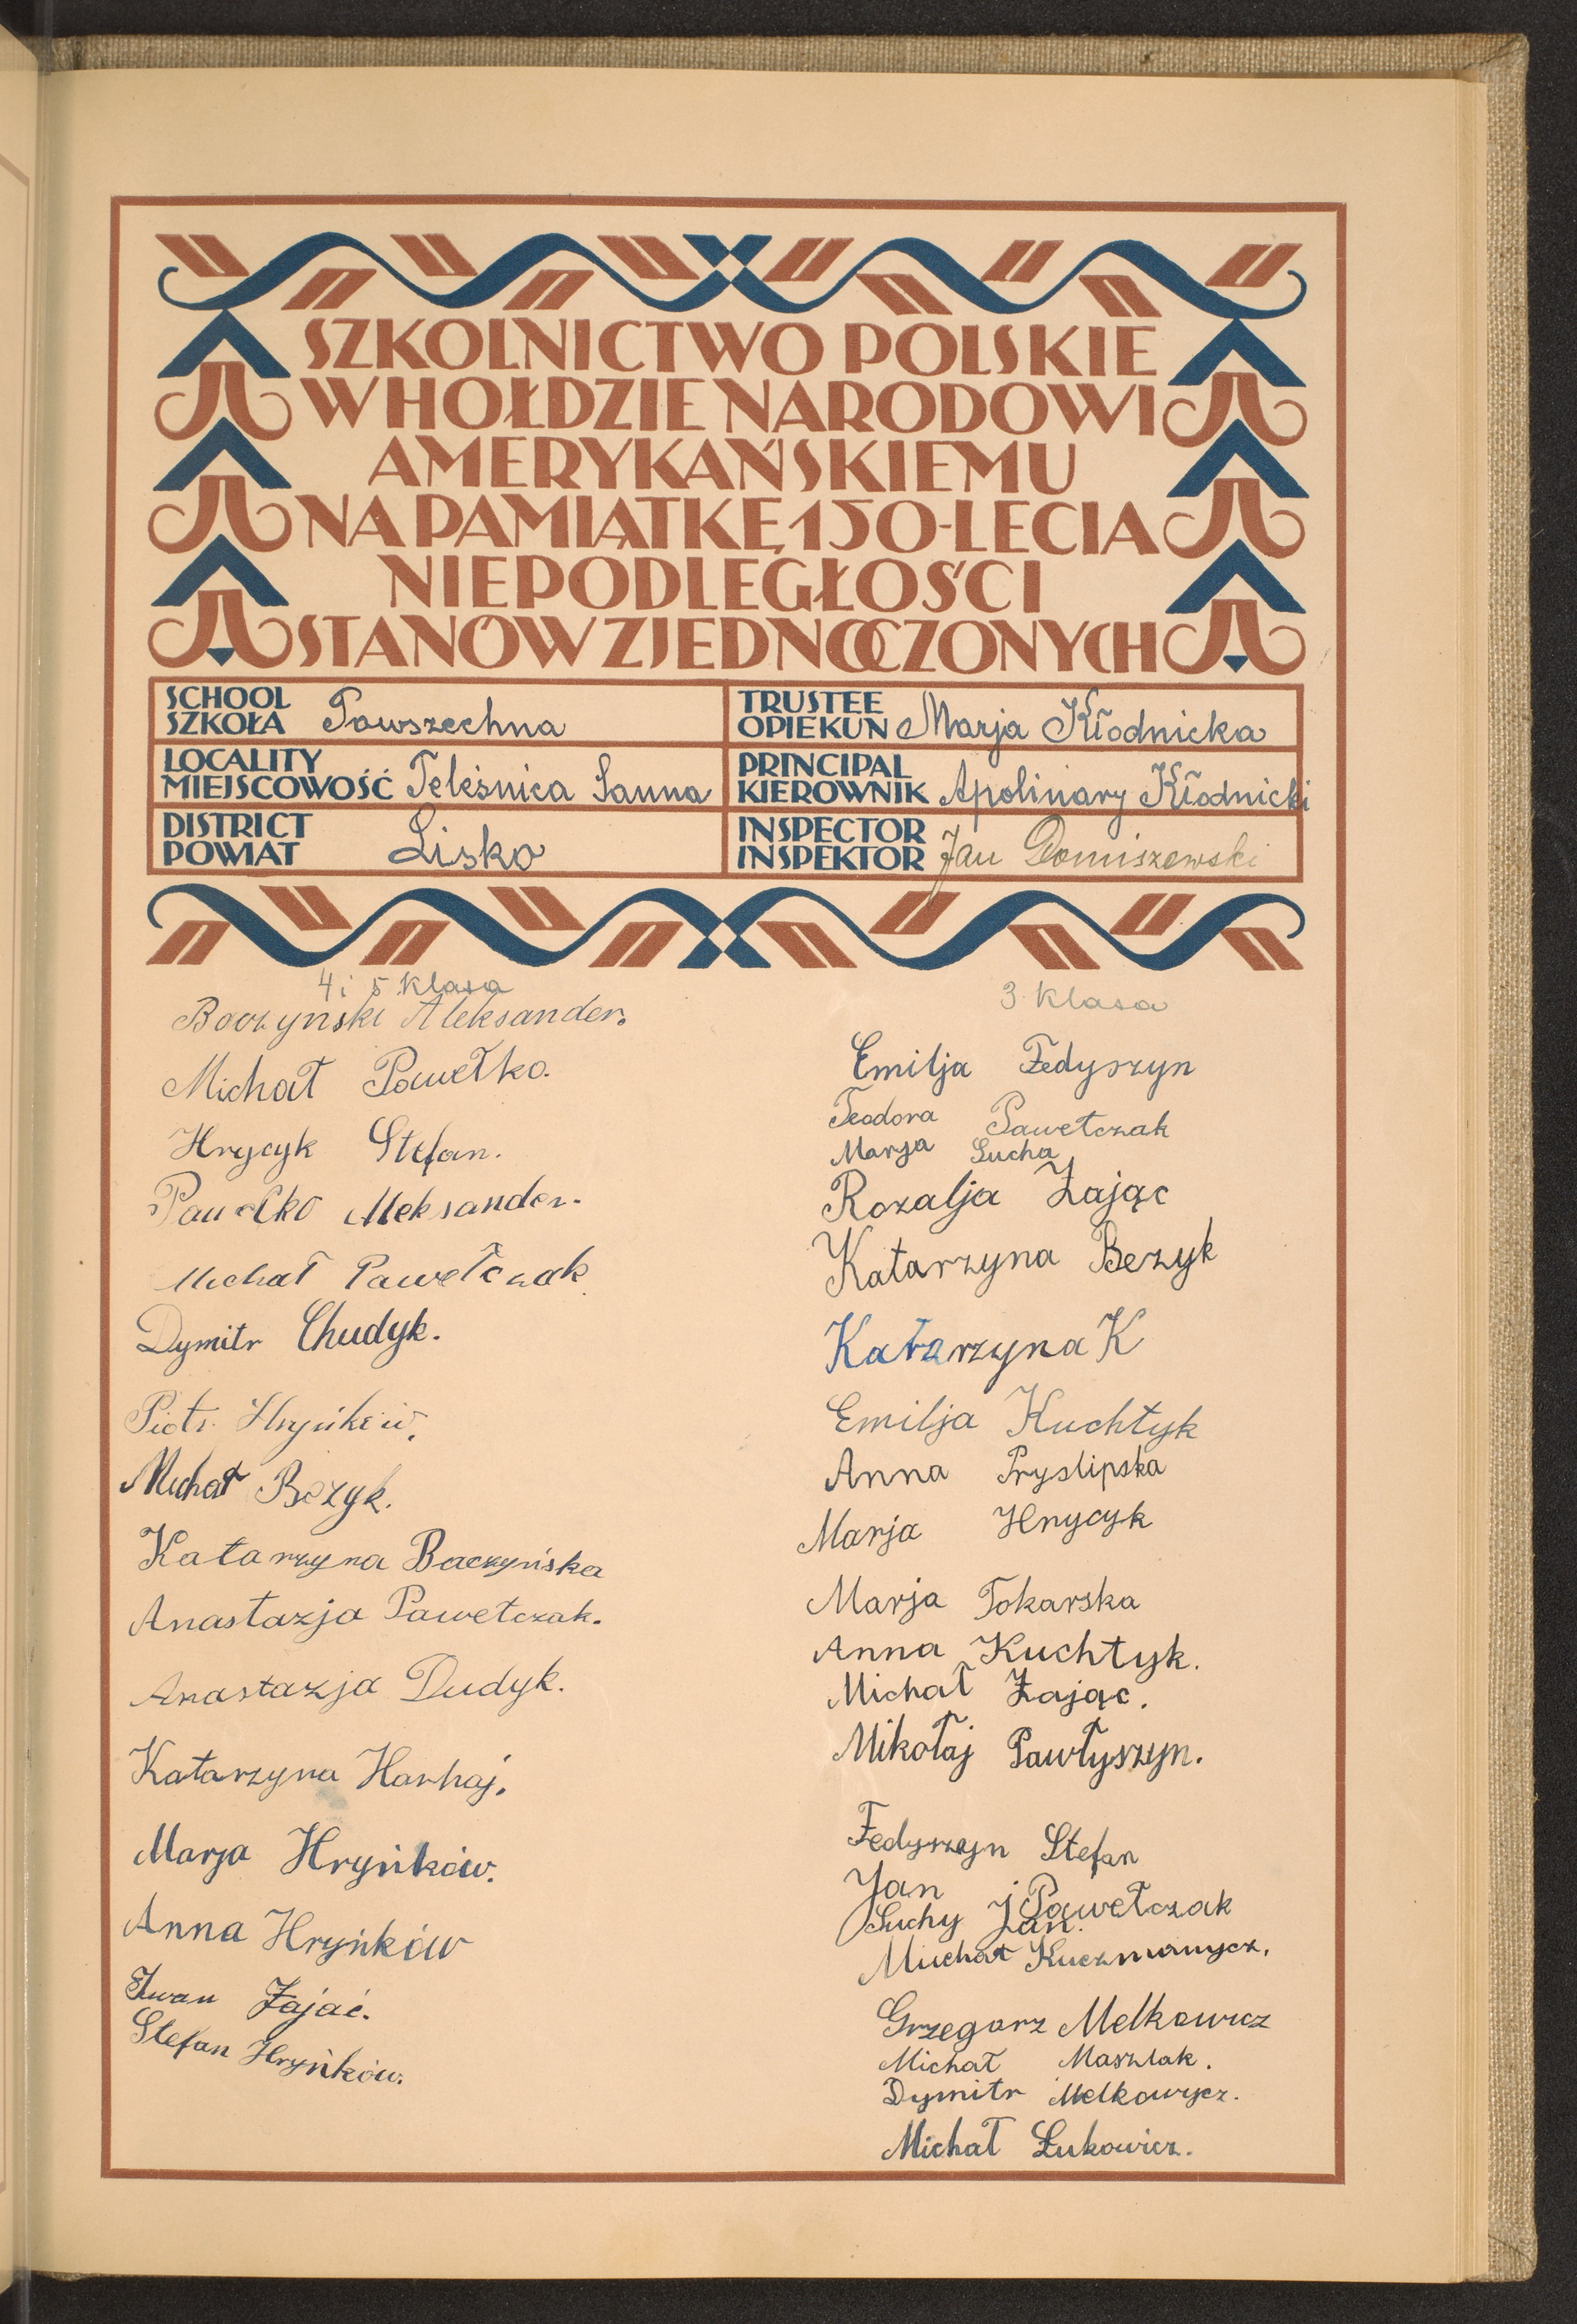 SZKOLNICTWO POLSKIE
W HOŁDZIE NARODOWI
AMERYKAŃSKIEMU
NA PAMIĄTKĘ 150-LECIA
NIEPODLEGŁOŚCI
STANÓW ZJEDNOCZONYCH
SCHOOL
SZKOŁA Powszechna
TRUSTEE
OPIEKUN Marja Kłodnicka
LOCALITY
MIEJSCOWOŚĆ Teleśnica Sanna
PRINCIPAL
KIEROWNIK Apolinary Kłodnicki
DISTRICT
POWIAT Lisko
INSPECTOR
INSPEKTOR Jan Domiszewski
4 i 5 klasa
Baczynski Aleksander.
Michał Pawełko.
Hrycyk Stefan.
Pawełko Aleksander.
Michał Pawełczak
Dymitr Chudyk.
Piotr Hryńków.
Michał Bezyk.
Katarzyna Baczyńska
Anastazja Pawełczak.
Anastazja Dudyk.
Katarzyna Harhaj.
Marja Hryńków.
Anna Hryńków
Iwan Zajać.
Stefan Hryńków.
3 klasa
Emilja Fedyszyn
Teodora Pawełczak
Marja Sucha
Rozalja Zając
Katarzyna Bezyk
Katarzyna K
Emilja Kuchtyk
Anna Pryslipska
Marja Hrycyk
Marja Tokarska
Anna Kuchtyk.
Michał Zając.
Mikołaj Pawłyszyn.
Fedyszyn Stefan
Jan Pawełczak
Suchy Jan.
Michał Kuczmanycz.
Grzegorz Melkowicz
Michał Maszlak.
Dymitr Melkowycz.
Michał Łukowicz.